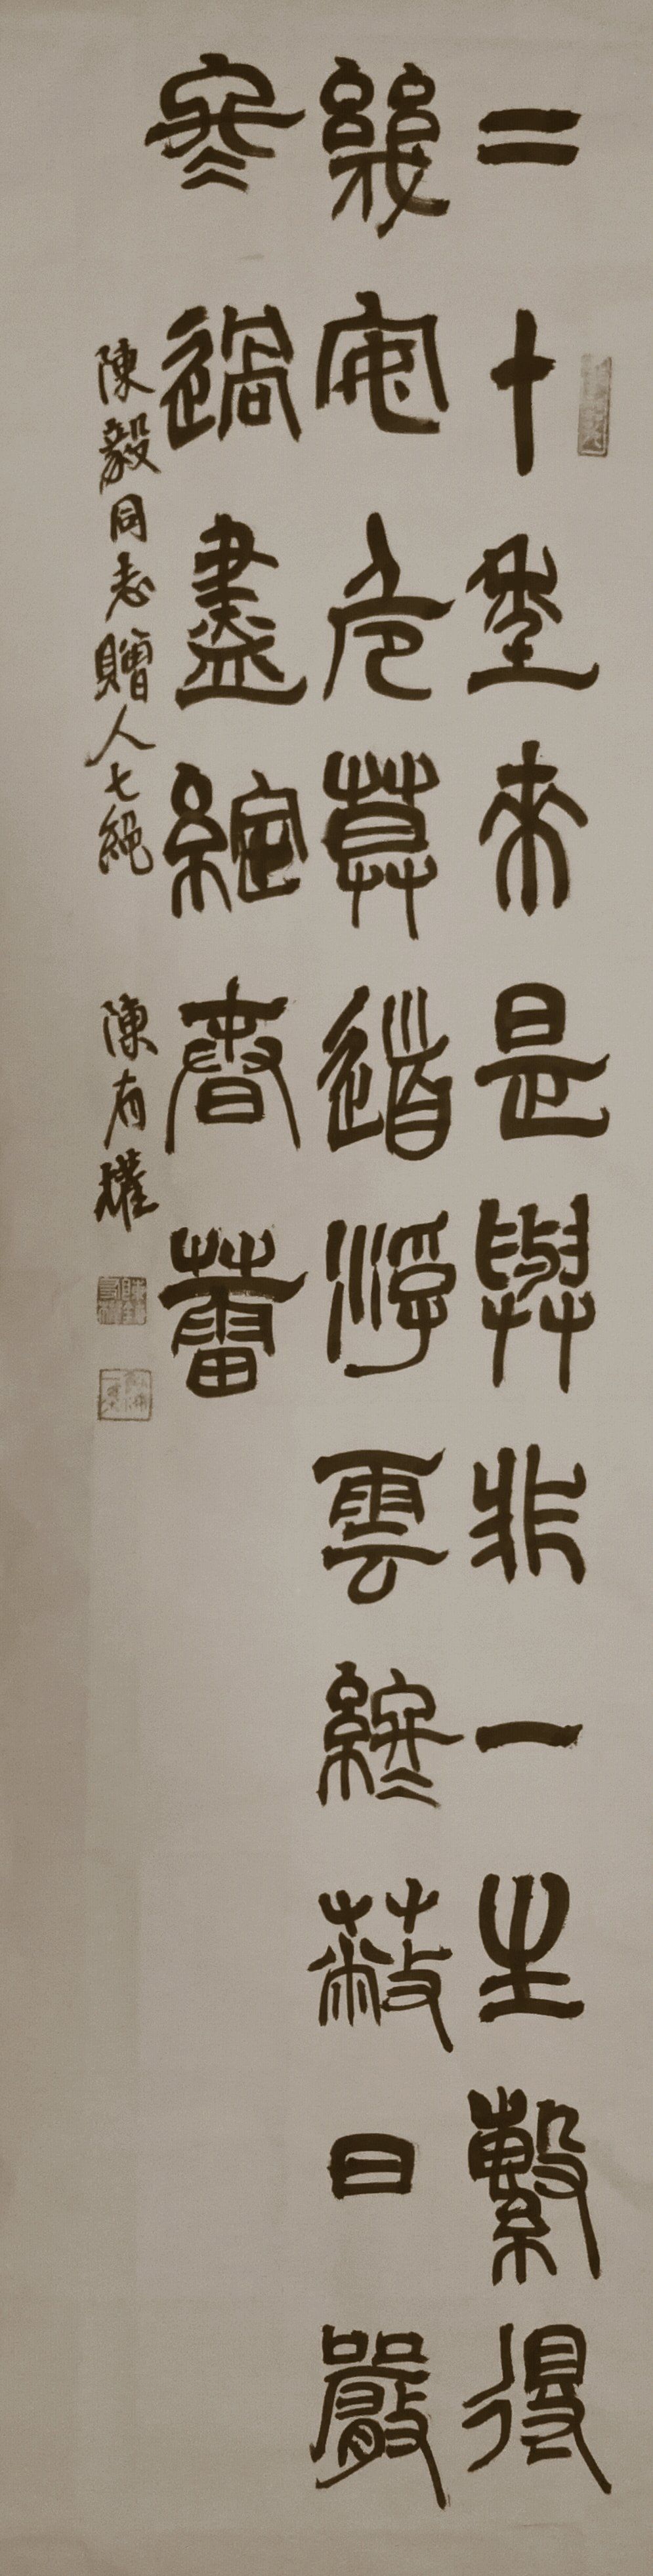 二十年來是與非一生繫得
幾安危莫道浮雲終蔽日嚴
冬過盡綻春蕾
陳毅同志贈人七絕
陳有